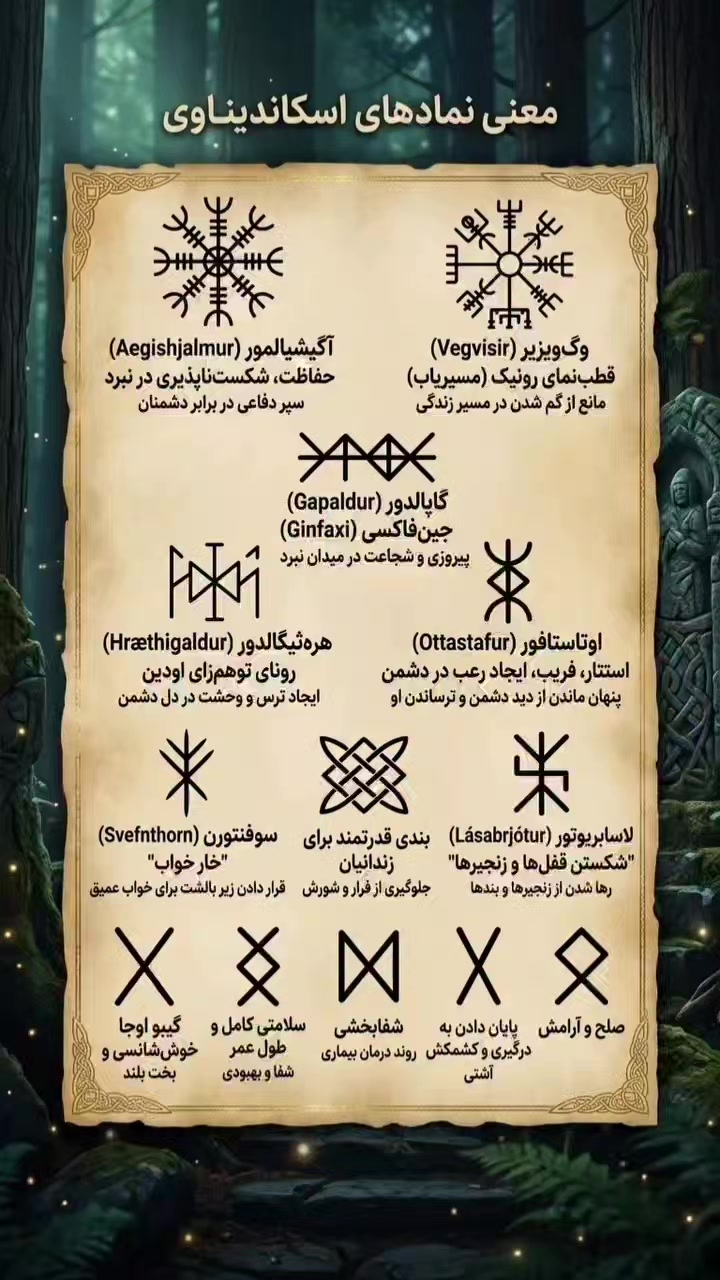 معنی نمادهای اسکاندیناوی
وگ‌ویزیر (Vegvisir)
قطب‌نمای رونیک (مسیریاب)
مانع از گم شدن در مسیر زندگی
آگیشیالمور (Aegishjalmur)
حفاظت، شکست‌ناپذیری در نبرد
سپر دفاعی در برابر دشمنان
گاپالدور (Gapaldur)
جین‌فاکسی (Ginfaxi)
پیروزی و شجاعت در میدان نبرد
اوتاستافور (Ottastafur)
استتار، فریب، ایجاد رعب در دشمن
پنهان ماندن از دید دشمن و ترساندن او
هره‌ثیگالدور (Hræthigaldur)
رونای توهم‌زای اودین
ایجاد ترس و وحشت در دل دشمن
لاسابریوتور (Lásabrjótur)
"شکستن قفل‌ها و زنجیرها"
رها شدن از زنجیرها و بندها
بندی قدرتمند برای
زندانیان
جلوگیری از فرار و شورش
سوفنتورن (Svefnthorn)
"خار خواب"
قرار دادن زیر بالشت برای خواب عمیق
صلح و آرامش
پایان دادن به
درگیری و کشمکش
آشتی
شفابخشی
روند درمان بیماری
سلامتی کامل و
طول عمر
شفا و بهبودی
گیبو اوجا
خوش‌شانسی و
بخت بلند